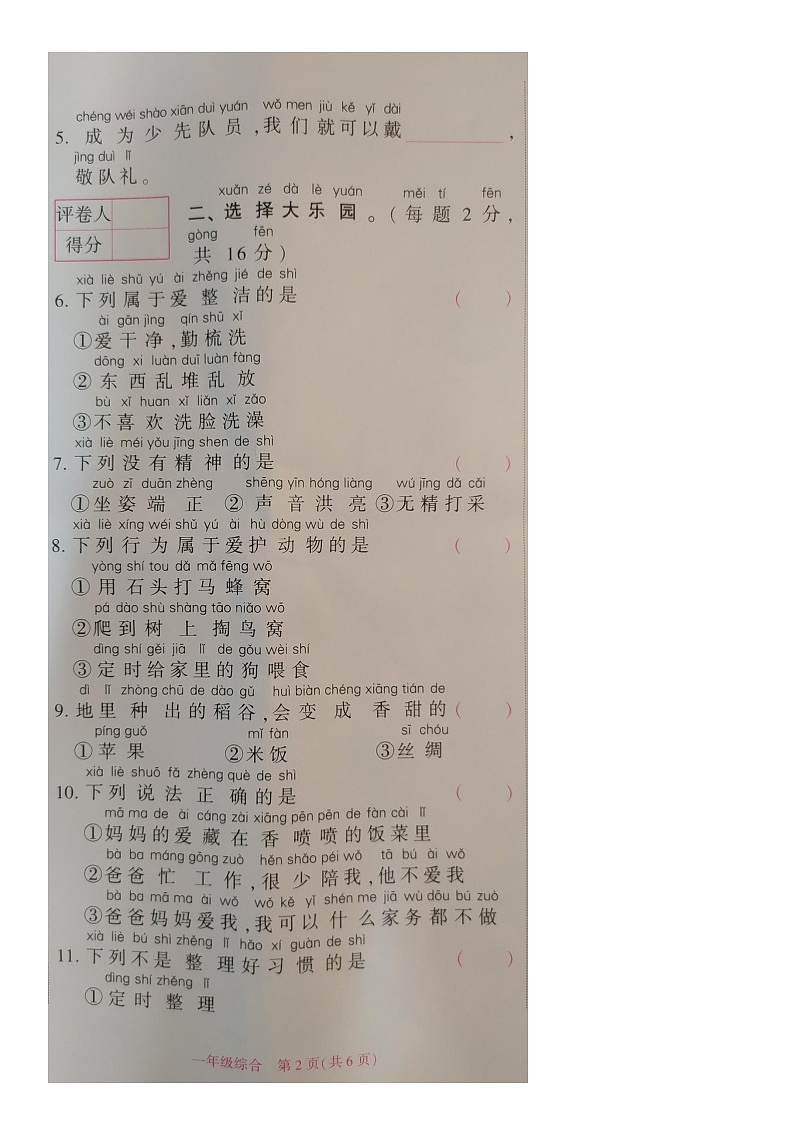 chéng wéi shào xiān duì yuán wǒ men jiù kě yǐ dài
5. 成为少先队员,我们就可以戴________,
jìng duì lǐ
敬队礼。
评卷人
得分
xuǎn zé dà lè yuán měi tí fēn
二、选择大乐园。(每题2分,
gòng fēn
共16分)
xià liè shǔ yú ài zhěng jié de shì
6. 下列属于爱整洁的是 ( )
ài gān jìng qín shū xǐ
①爱干净,勤梳洗
dōng xi luàn duī luàn fàng
②东西乱堆乱放
bù xǐ huan xǐ liǎn xǐ zǎo
③不喜欢洗脸洗澡
xià liè méi yǒu jīng shen de shì
7. 下列没有精神的是 ( )
zuò zī duān zhèng shēng yīn hóng liàng wú jīng dǎ cǎi
①坐姿端正 ②声音洪亮 ③无精打采
xià liè xíng wéi shǔ yú ài hù dòng wù de shì
8. 下列行为属于爱护动物的是 ( )
yòng shí tou dǎ mǎ fēng wō
①用石头打马蜂窝
pá dào shù shàng tāo niǎo wō
②爬到树上掏鸟窝
dìng shí gěi jiā lǐ de gǒu wèi shí
③定时给家里的狗喂食
dì lǐ zhòng chū de dào gǔ huì biàn chéng xiāng tián de
9. 地里种出的稻谷,会变成香甜的 ( )
píng guǒ mǐ fàn sī chóu
①苹果 ②米饭 ③丝绸
xià liè shuō fǎ zhèng què de shì
10. 下列说法正确的是 ( )
mā ma de ài cáng zài xiāng pēn pēn de fàn cài lǐ
①妈妈的爱藏在香喷喷的饭菜里
bà ba máng gōng zuò hěn shǎo péi wǒ tā bú ài wǒ
②爸爸忙工作,很少陪我,他不爱我
bà ba mā ma ài wǒ wǒ kě yǐ shén me jiā wù dōu bú zuò
③爸爸妈妈爱我,我可以什么家务都不做
xià liè bú shì zhěng lǐ hǎo xí guàn de shì
11. 下列不是整理好习惯的是 ( )
dìng shí zhěng lǐ
①定时整理
一年级综合 第2页(共6页)